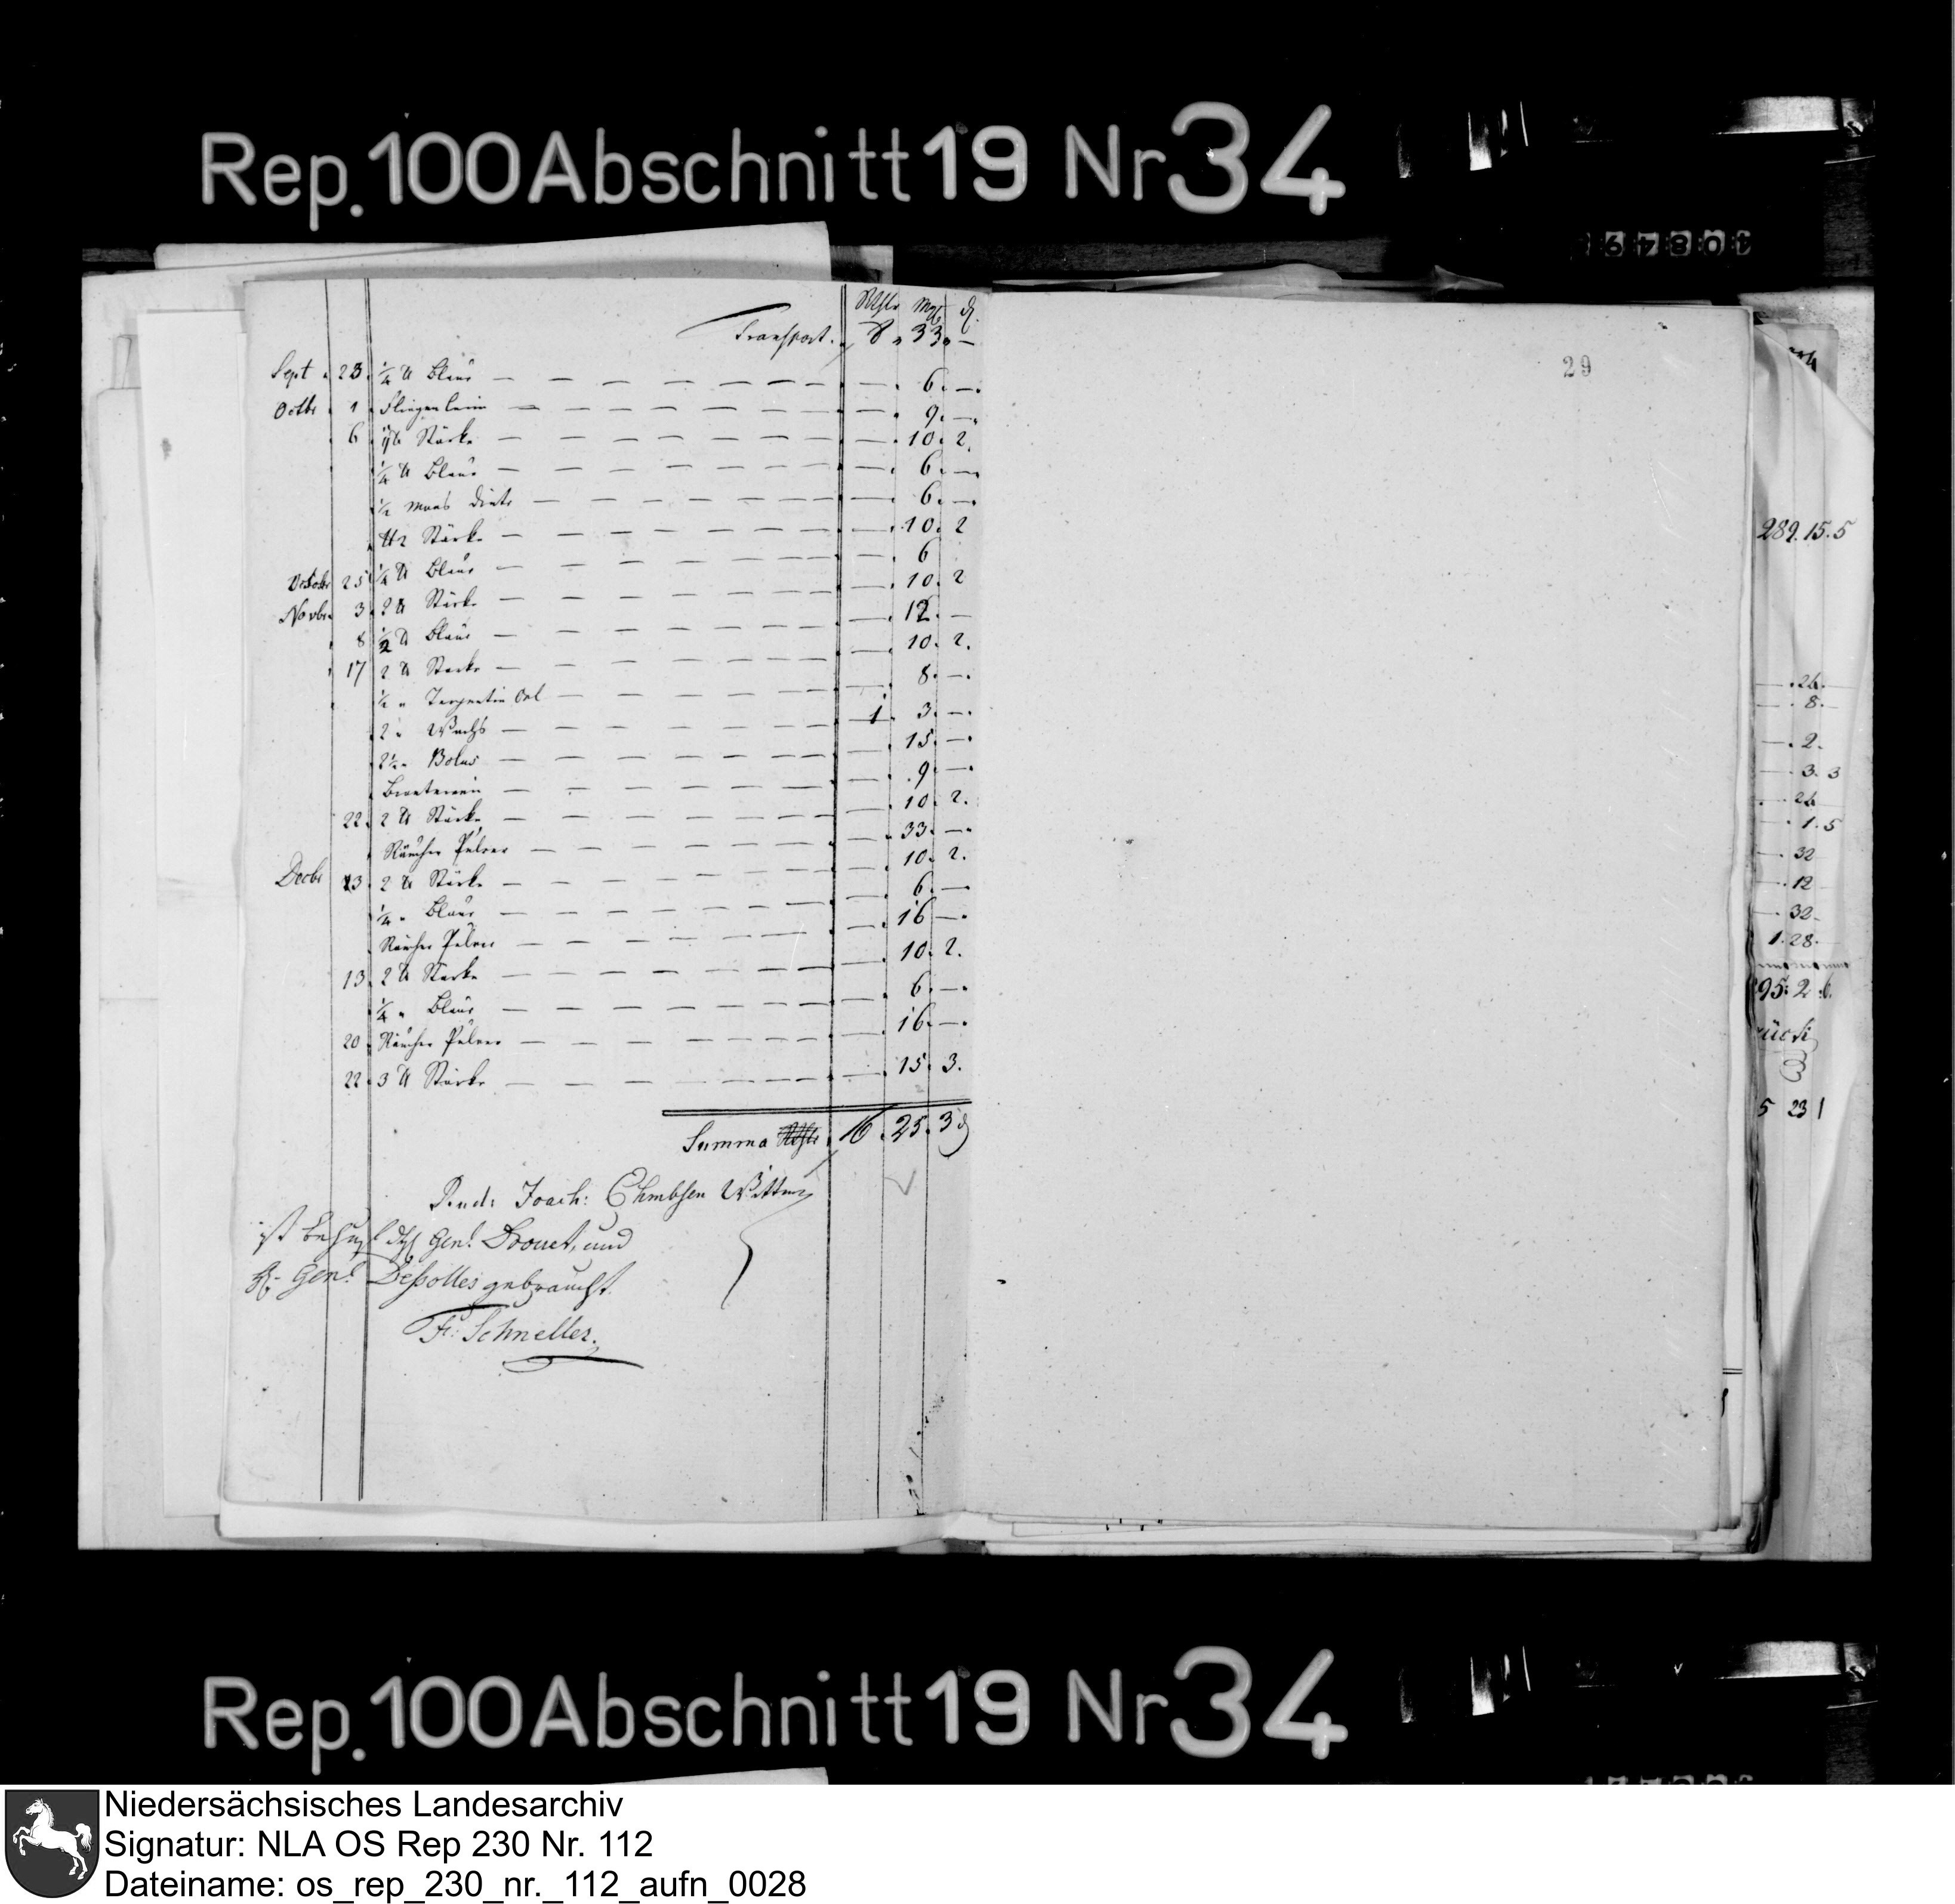 Rep. 100 Abschnitt 19 Nr 34
40849
Rthlr Mgl ₰
Transport. 8 " 33 " —
Sept " 23. ¼ ℔ Blaue — 6. —
Octbr 1 Fliegenleim — 9. —
6 2 ℔ Stärke — 10. 2.
¼ ℔ Blaue — 6. —
½ Maas Dinte — 6. —
℔ 2 Stärke — 10. 2
October 25 ¼ ℔ Blaue — 6
Novbr 3 2 ℔ Stärke — 10. 2
8 ½ ℔ Blaue — 12. —
17 2 ℔ Starke — 10. 2.
½ " Terpentin Oel — 8. —
2 " Wachs — 1. 3. —
2½ " Bolus — 15. —
Brantewein — 9. —
22. 2 ℔ Stärke — 10. 2.
Räucher Pulver — 33. —
Decbr 13. 2 ℔ Stärke — 10. 2.
¼ " Blaue — 6. —
Räucher Pulver — 16 —
13. 2 ℔ Starke — 10. 2.
¼ " Blaue — 6. —
20 Räucher Pulver — 16. —
22. 3 ℔ Stärke — 15. 3.
Summa 16. 25. 3 ₰
Joach: Ehmbsen Wittwe
ist behuf des Genl. Drouet, und
Genl. Dessolles gebraucht.
Fr: Schneller.
29
289. 15. 5
26.
8.
2.
3. 3
26
1. 5
32
12
32.
1. 28.
95. 2. 6.
5 23 1
Rep. 100 Abschnitt 19 Nr 34
Niedersächsisches Landesarchiv
Signatur: NLA OS Rep 230 Nr. 112
Dateiname: os_rep_230_nr._112_aufn_0028